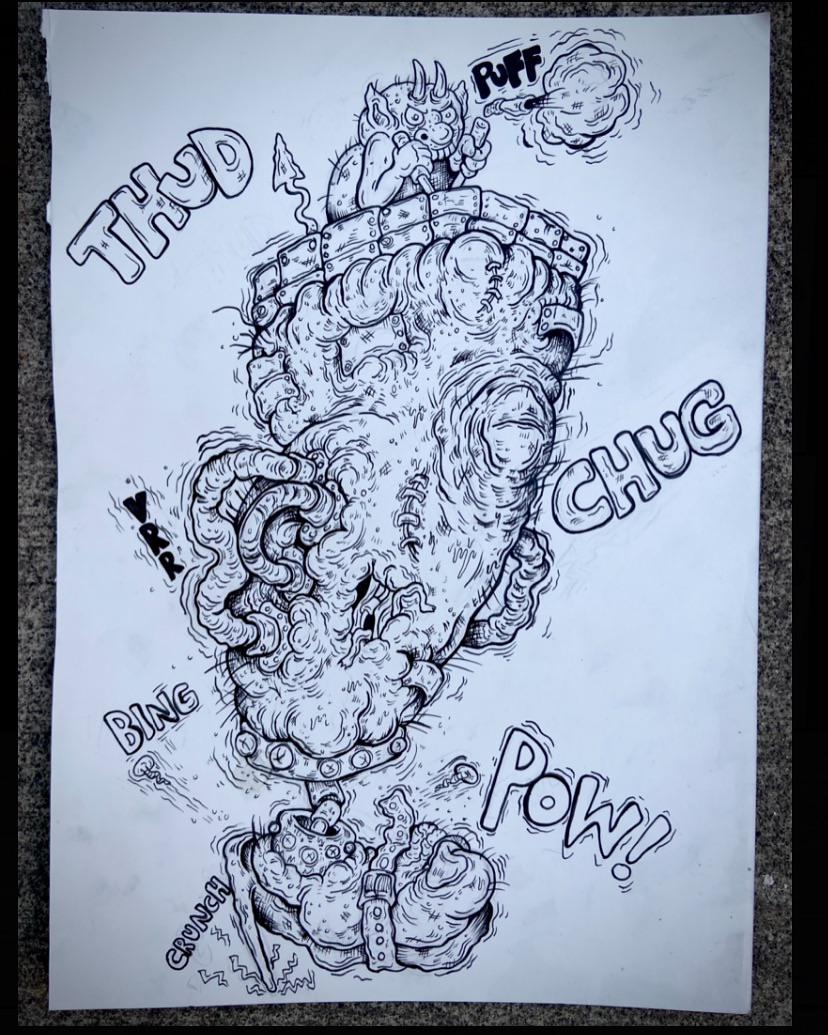 PUFF
THUD
CHUG
VRR
BING
POW!
CRUNCH